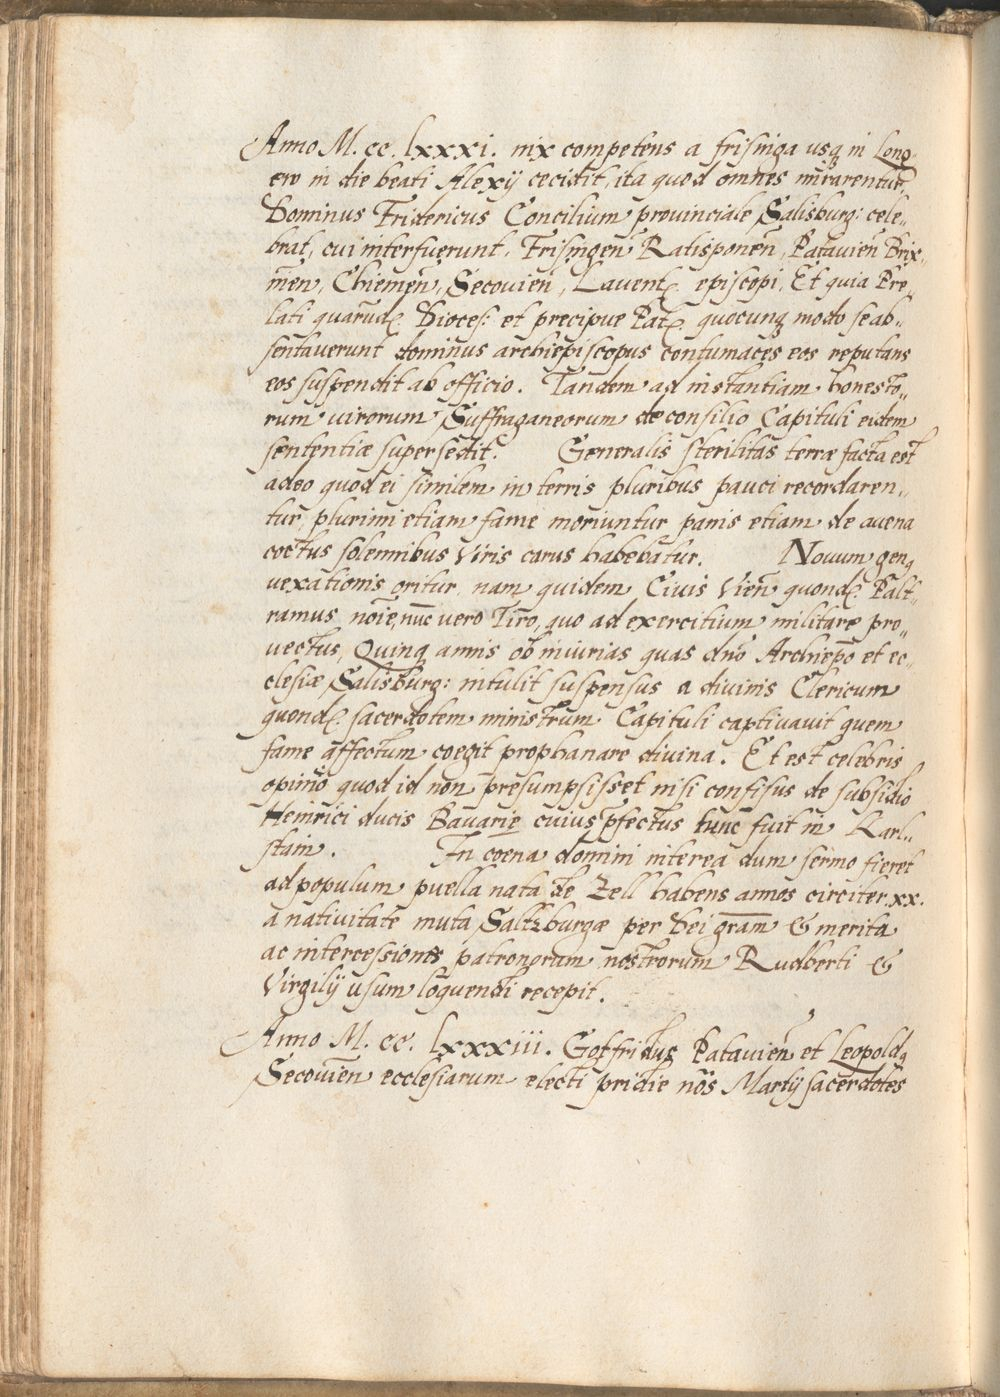 Anno M. cc. lxxxi. nix competens a frisinga usq̨ in Long„
ew in die beati Alexij cecidit, ita quod omnes mirarentur,
Dominus Fridericus Concilium provinciale Salisburg: cele„
brat, cui interfuerunt. Frisingen̄ Ratisponen̄, Patavien̄ Brix„
inen̄, Chiemen̄, Secovien̄, Lavent̨. episcopi, Et quia Pre„
lati quarūd̨. Dioces: et precipue Pat̨. quocunq̨ modo se ab„
sentaverunt dominus archiepiscopus contumaces eos reputans
eos suspendit ab officio. Tandem ad instantiam honesto„
rum virorum Suffraganeorum de consilio Capituli eidem
sententiæ supersedit. Generalis sterilitas terræ facta est
adeo quod ei similem in terris pluribus pauci recordaren„
tur, plurimi etiam fame moriuntur panis etiam de avena
coctus solennibus Viris carus habebatur. Novum genq̨
vexationis oritur, nam quidem Civis Vien̄ quond̨. Palt„
ramus nōie, nūc vero Tiro, quo ad exercitium militare pro„
vectus, Quinq̨ annis ob iniurias quas dn̄o Archiep̄o et ec„
clesiæ Salisburg: intulit suspensus a divinis Clericum
quond̨. sacerdotem ministrum Capituli captivavit quem
fame affectum coegit prophanare divina. Et est celebris
opinio quod id non presumpsisset nisi confisus de subsidio
Heinrici ducis Bavarie cuius p̄fectus tunc fuit in Karl„
stain. In coena domini interea dum sermo fieret
ad populum puella nata de Zell habens annos circiter .xx.
a nativitate muta Saltzburgæ per Dei gr̄am & merita
ac intercessiones patronorum nostrorum Rudberti &
Virgilij usum loquendi recepit.
Anno M. cc. lxxxiii. Gotfridus Patavien̄ et Leopoldq̨
Secovien̄ ecclesiarum electi pridie nōs Martij sacerdotes